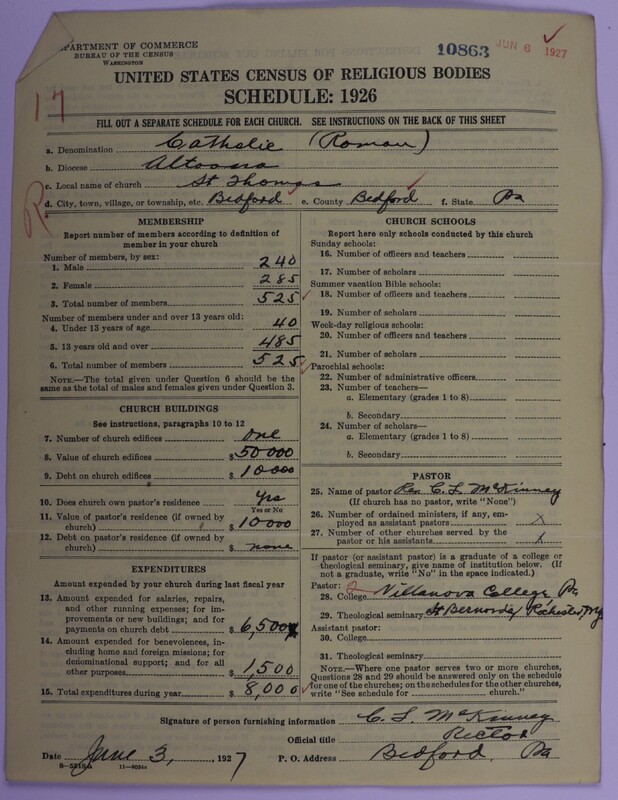 DEPARTMENT OF COMMERCE
BUREAU OF THE CENSUS
WASHINGTON
10863
JUN 6 1927
UNITED STATES CENSUS OF RELIGIOUS BODIES
SCHEDULE: 1926
17
FILL OUT A SEPARATE SCHEDULE FOR EACH CHURCH. SEE INSTRUCTIONS ON THE BACK OF THIS SHEET
a. Denomination Catholic (Roman)
b. Diocese Altoona
c. Local name of church St Thomas
d. City, town, village, or township, etc. Bedford e. County Bedford f. State Pa
R
MEMBERSHIP
Report number of members according to definition of member in your church
Number of members, by sex:
1. Male 240
2. Female 285
3. Total number of members 525
Number of members under and over 13 years old:
4. Under 13 years of age 40
5. 13 years old and over 485
6. Total number of members 525
NOTE.—The total given under Question 6 should be the
same as the total of males and females given under Question 3.
CHURCH BUILDINGS
See instructions, paragraphs 10 to 12
7. Number of church edifices one
8. Value of church edifices $50000
9. Debt on church edifices $10000
10. Does church own pastor's residence Yes
Yes or No
11. Value of pastor's residence (if owned by
church) $10000
12. Debt on pastor's residence (if owned by
church) $ none
EXPENDITURES
Amount expended by your church during last fiscal year
13. Amount expended for salaries, repairs,
and other running expenses; for im-
provements or new buildings; and for
payments on church debt $6,500
14. Amount expended for benevolences, in-
cluding home and foreign missions; for
denominational support; and for all
other purposes $1,500
15. Total expenditures during year $8,000
CHURCH SCHOOLS
Report here only schools conducted by this church
Sunday schools:
16. Number of officers and teachers
17. Number of scholars
Summer vacation Bible schools:
18. Number of officers and teachers
19. Number of scholars
Week-day religious schools:
20. Number of officers and teachers
21. Number of scholars
Parochial schools:
22. Number of administrative officers
23. Number of teachers—
a. Elementary (grades 1 to 8)
b. Secondary
24. Number of scholars—
a. Elementary (grades 1 to 8)
b. Secondary
PASTOR
25. Name of pastor Rev. C. L. McKinney
(If church has no pastor, write "None")
26. Number of ordained ministers, if any, em-
ployed as assistant pastors x
27. Number of other churches served by the
pastor or his assistants x
If pastor (or assistant pastor) is a graduate of a college or
theological seminary, give name of institution below. (If
not a graduate, write "No" in the space indicated.)
Pastor:
28. College Villanova College Pa
29. Theological seminary St Bernards, Rochester, NY
Assistant pastor:
30. College
31. Theological seminary
NOTE.—Where one pastor serves two or more churches,
Questions 28 and 29 should be answered only on the schedule
for one of the churches; on the schedules for the other churches,
write "See schedule for church."
Signature of person furnishing information C. L. McKinney
Official title Rector
Date June 3, 1927 P. O. Address Bedford, Pa